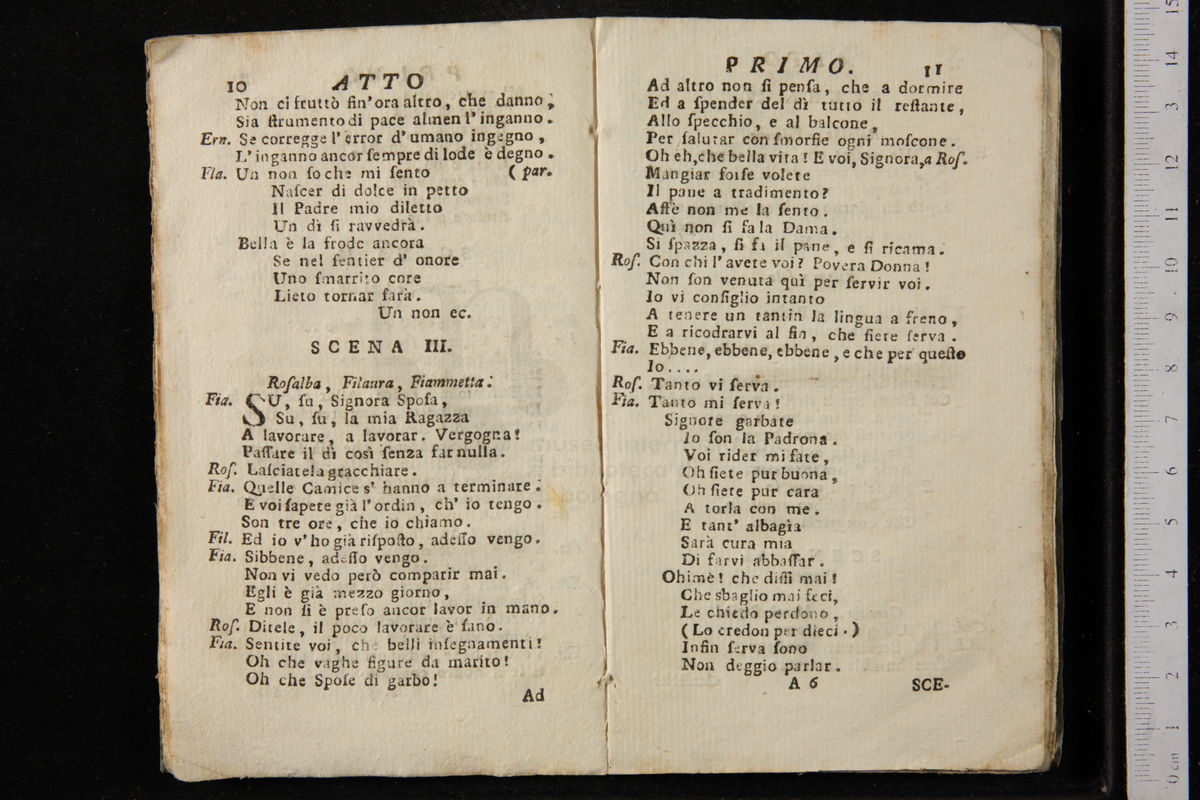 10 ATTO
Non ci fruttò ſin'ora altro, che danno;
Sia ſtrumento di pace almen l'inganno.
Ern. Se corregge l'error d'umano ingegno,
L'inganno ancor ſempre di lode è degno.
Fla. Un non ſo che mi ſento (par.
Naſcer di dolce in petto
Il Padre mio diletto
Un dì ſi ravvedrà.
Bella è la frode ancora
Se nel ſentier d' onore
Uno ſmarrito core
Lieto tornar farà.
Un non ec.
SCENA III.
Roſalba, Filaura, Fiammetta.
Fia. SU, ſu, Signora Spoſa,
Su, ſu, la mia Ragazza
A lavorare, a lavorar. Vergogna!
Paſſare il dì così ſenza far nulla.
Roſ. Laſciatela gracchiare.
Fia. Quelle Camice s' hanno a terminare.
E voi ſapete già l'ordin, ch' io tengo.
Son tre ore, che io chiamo.
Fil. Ed io v'ho già riſpoſto, adeſſo vengo.
Fia. Sibbene, adeſſo vengo.
Non vi vedo però comparir mai.
Egli è già mezzo giorno,
E non ſi è preſo ancor lavor in mano.
Roſ. Ditele, il poco lavorare è ſano.
Fia. Sentite voi, che belli inſegnamenti!
Oh che vaghe figure da marito!
Oh che Spoſe di garbo!
Ad
PRIMO. 11
Ad altro non ſi penſa, che a dormire
Ed a ſpender del dì tutto il reſtante,
Allo ſpecchio, e al balcone,
Per ſalutar con ſmorfie ogni moſcone.
Oh eh, che bella vita! E voi, Signora, a Roſ.
Mangiar forſe volete
Il pane a tradimento?
Affè non me la ſento.
Quì non ſi fa la Dama.
Si ſpazza, ſi fi il pane, e ſi ricama.
Roſ. Con chi l'avete voi? Povera Donna!
Non ſon venuta quì per ſervir voi.
Io vi conſiglio intanto
A tenere un tantin la lingua a freno,
E a ricodrarvi al fin, che ſiete ſerva.
Fia. Ebbene, ebbene, ebbene, e che per queſto
Io....
Roſ. Tanto vi ſerva.
Fia. Tanto mi ſerva!
Signore garbate
Io ſon la Padrona.
Voi rider mi fate,
Oh ſiete pur buona,
Oh ſiete pur cara
A torla con me.
E tant' albagìa
Sarà cura mia
Di farvi abbaſſar.
Ohimè! che diſſi mai!
Che sbaglio mai feci,
Le chiedo perdono,
(Lo credon per dieci.)
Infin ſerva ſono
Non deggio parlar.
A 6 SCE-